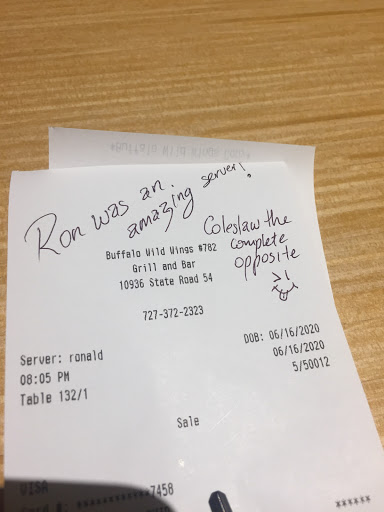 Ron was an
amazing server!
Coleslaw the
complete
opposite
Buffalo Wild Wings #782
Grill and Bar
10936 State Road 54
727-372-2323
DOB: 06/16/2020
Server: ronald
06/16/2020
08:05 PM
5/50012
Table 132/1
Sale
VISA
7458
******